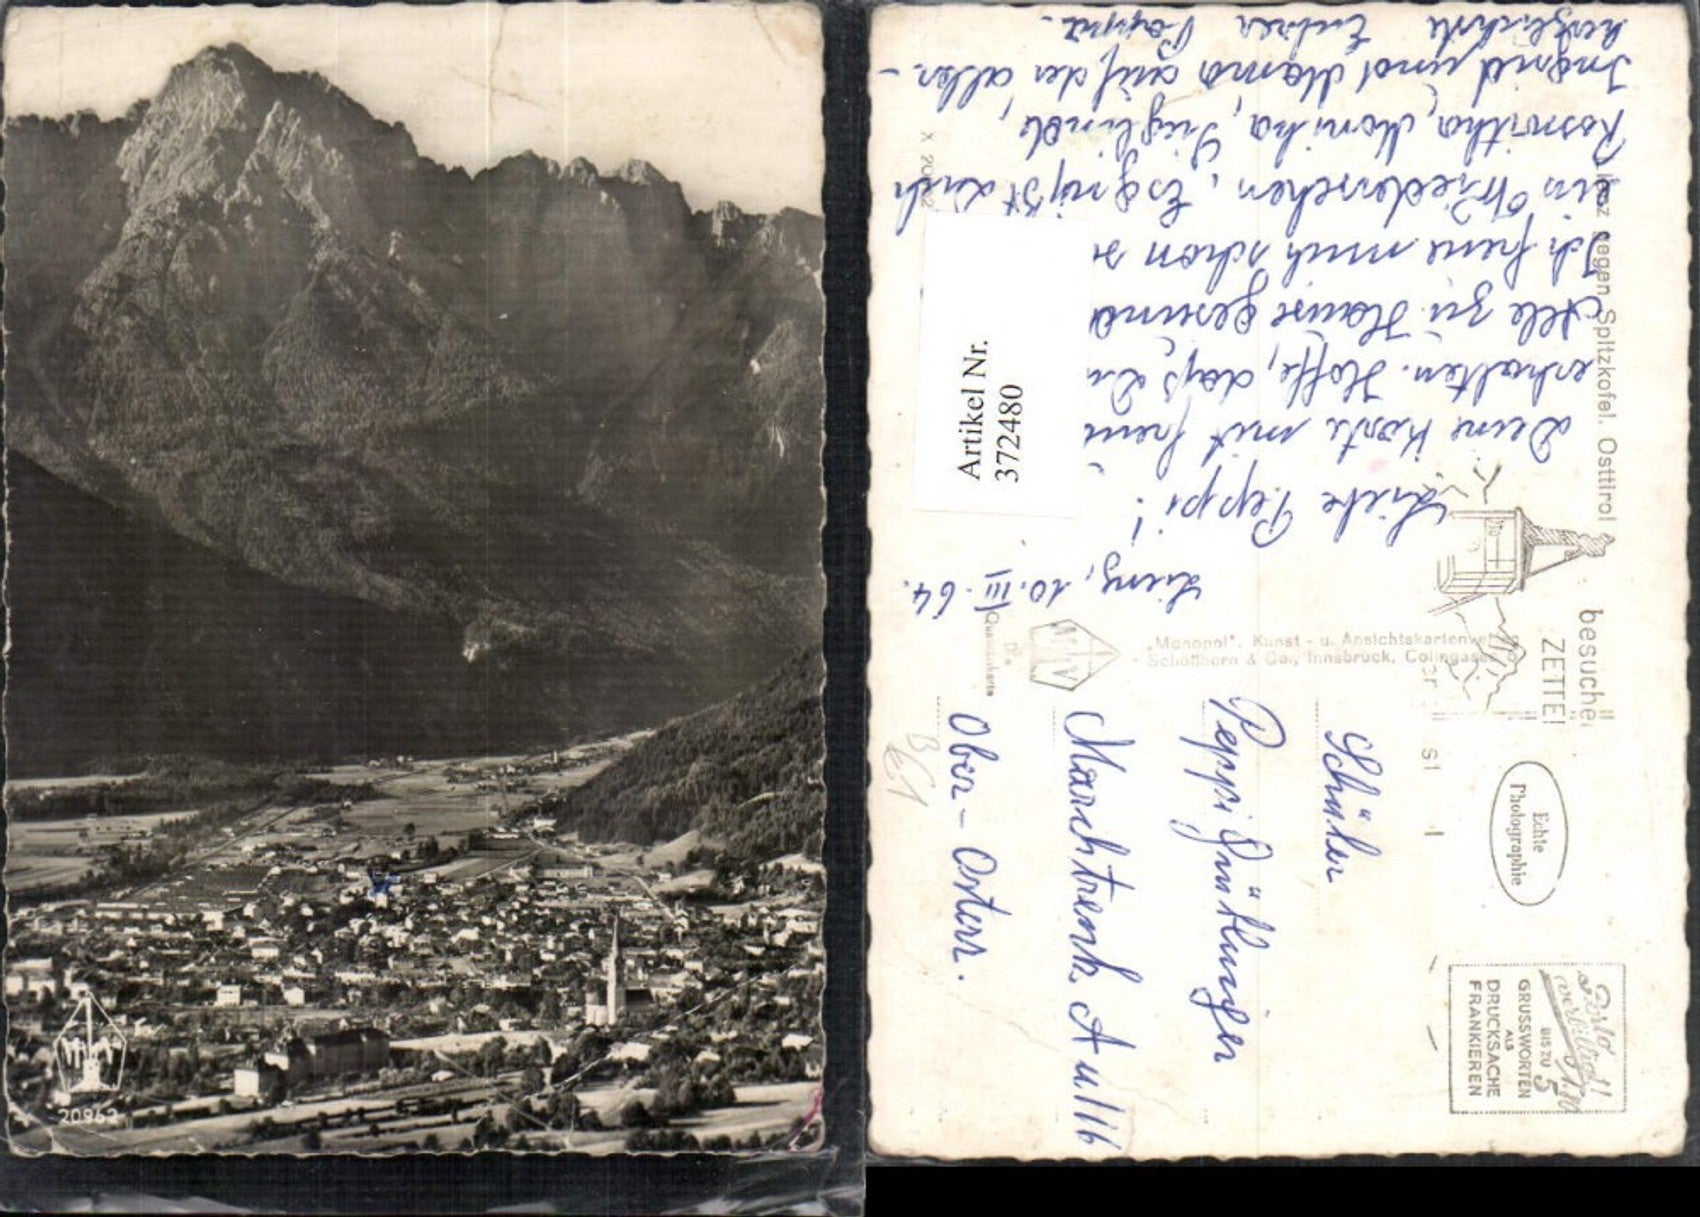 20962
Lienz, 10. III. 64.
Liebe Peppi!
Deine Karte mit Freu
erhalten. Hoffe, daß Du
Alle zu Hause gesund
Ich freue mich schon
ein Wiedersehen. Es grüßt dich
Roswitha, Monika, Sieglinde,
Ingrid und Mama auf das aller-
herzlichste Eurer Pappa.
Artikel Nr.
372480
gegen Spitzkofel. Osttirol
„Monopol", Kunst- u. Ansichtskartenverlag
Schöllhorn & Co., Innsbruck, Colingasse
Qualitätskarte
besuchet
ZETTE
Echte
Photographie
Porto
verbilligt!
BIS ZU 5
GRUSSWORTEN
ALS
DRUCKSACHE
FRANKIEREN
Schüler
Peppi
Marchtrenk
Ober-Österr.